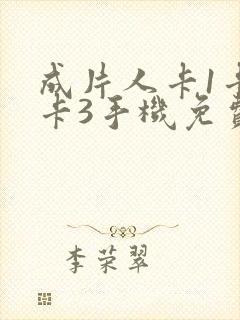 成片人卡1卡
卡3手機免費
李荣翠